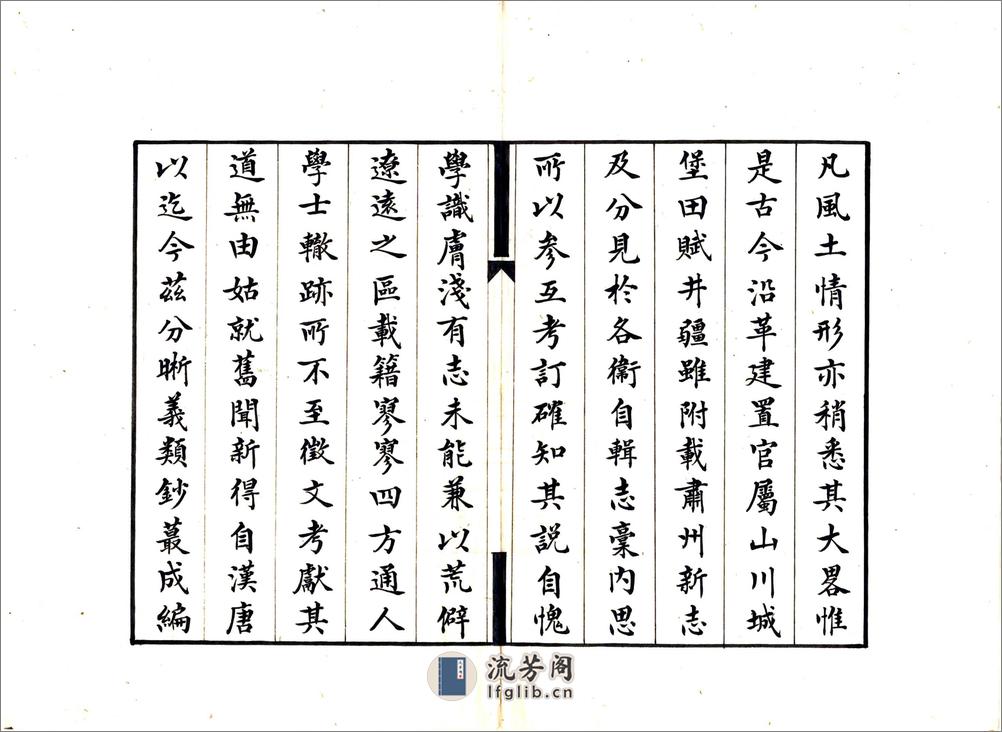 凡風土情形亦稍悉其大畧惟
是古今沿革建置官屬山川城
堡田賦井疆雖附載肅州新志
及分見於各衞自輯志稾內思
所以參互考訂確知其説自愧
學識膚淺有志未能兼以荒僻
遼遠之區載籍寥寥四方通人
學士轍跡所不至徵文考獻其
道無由姑就舊聞新得自漢唐
以迄今茲分晰義類鈔蕞成編
流芳阁
lfglib.cn